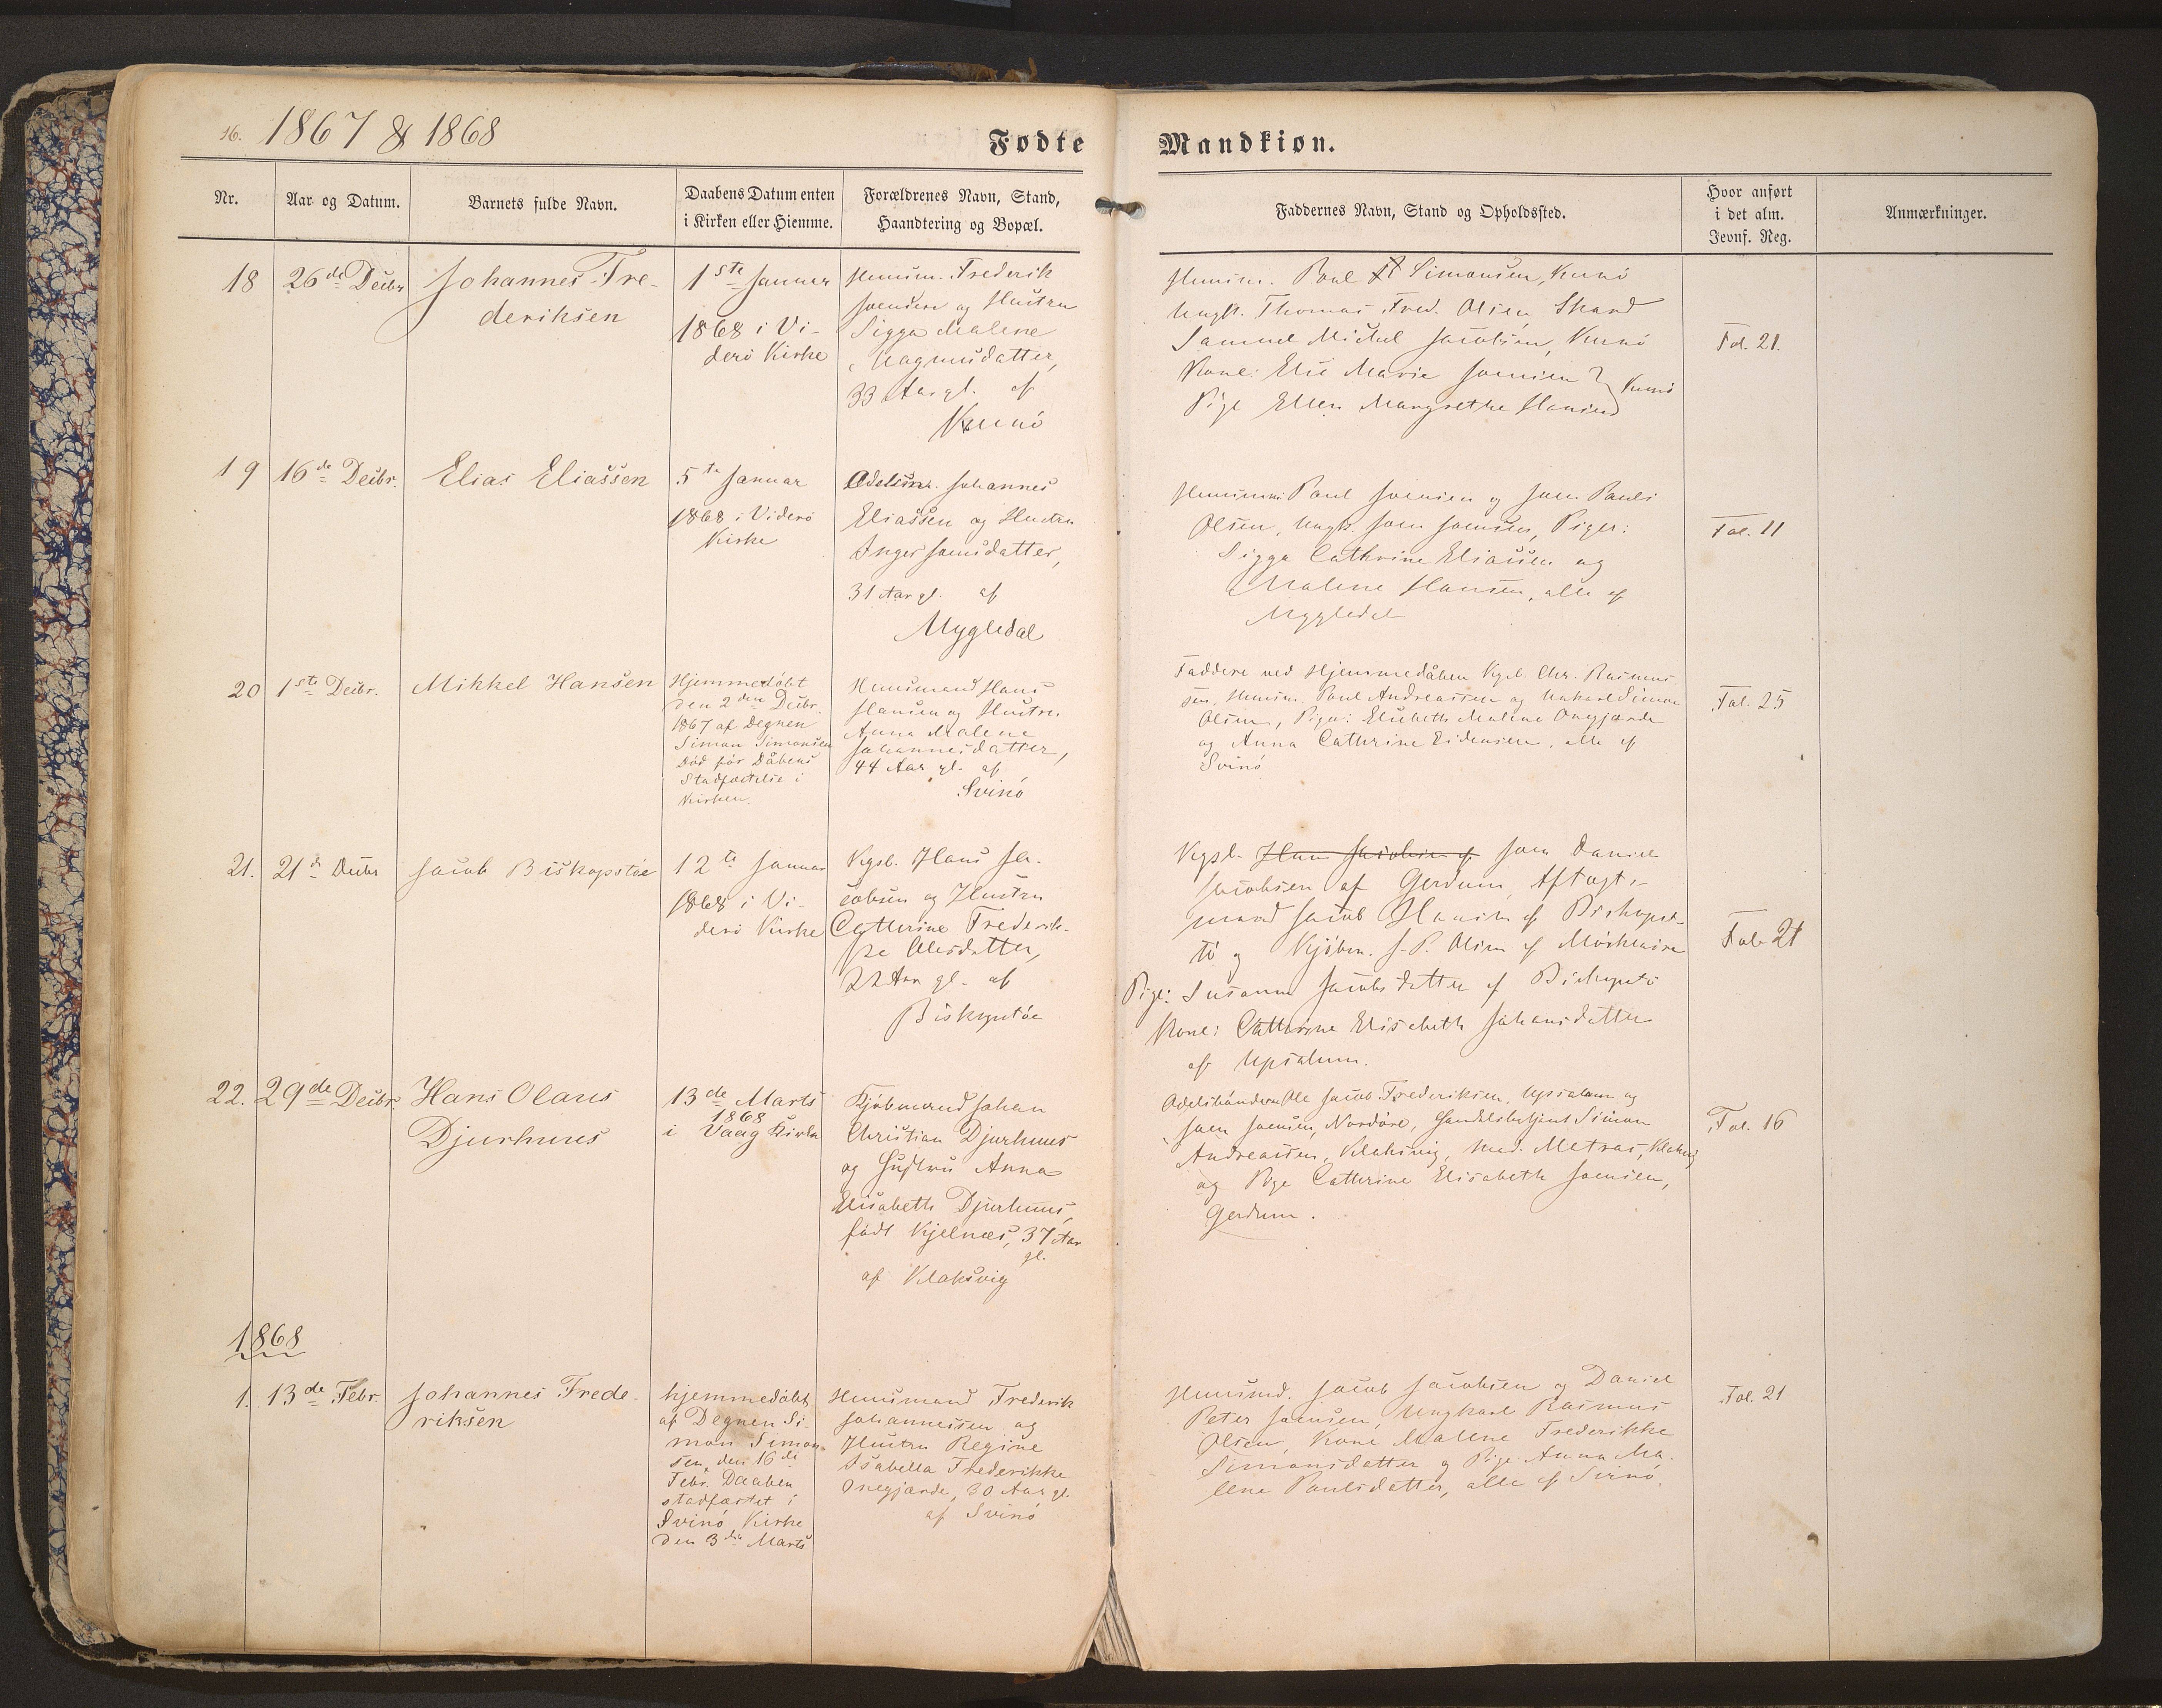 16. 1867 & 1868
Fødte
Mandkiøn.
Nr.
Aar og Datum.
Barnets fulde Navn.
Daabens Datum enten
i Kirken eller Hiemme.
Forældrenes Navn, Stand,
Haandtering og Bopæl.
Faddernes Navn, Stand og Opholdssted.
Hvor anført
i det alm.
Jevnf. Reg.
Anmærkninger.
18
26de Decbr
Johannes Fre-
deriksen
1ste Januar
1868 i Vi-
derö Kirke
Huusm. Frederik
Joensen og Hustru
Sigga Malene
Magnusdatter,
33 Aar gl. af
Kunö
Huusm. Poul Simonsen, Kunö
Ungk. Thomas Fred. Olsen Skaad
Samuel Michel Jacobsen, Kunö
Kone: Else Marie Joensen
Pige Ellen Margrethe Hansen
Kunö
Fol. 21.
19
16de Decbr.
Elias Eliassen
5te Januar
1868 i Viderö
Kirke
Odelsm. Johannes
Eliassen og Hustru
Inger Joensdatter,
31 Aar gl. af
Mygledal
Huusmm: Poul Joensen og Joen Pauli
Olsen, Ungk. Joen Joensen, Piger:
Sigga Cathrine Eliassen og
Malene Hansen, alle af
Mygledal
Fol. 11
20
1ste Decbr.
Mikkel Hansen
Hjemmedöbt
den 2den Decbr.
1867 af Degnen
Simon Simonsen
Död för Dåbens
Stadfæstelse i
Kirken.
Huusmand Hans
Hansen og Hustru
Anna Malene
Johannesdatter,
44 Aar gl. af
Svinö
Faddere ved Hjemmedåben Kgsb. Chr. Rasmus-
sen, Huusm. Poul Andreassen og Unkarl Simon
Olsen, Piger: Elsebeth Malene Onegjærde
og Anna Cathrine Eidensen, alle af
Svinö
Fol. 25
21.
21de Decbr
Jacob Biskopstöe
12te Januar
1868 i Vi-
derö Kirke
Kgsb. Hans Ja-
cobsen og Hustru
Cathrine Frederik-
ke Olesdatter,
22 Aar gl. af
Biskopstöe
Kgsb. Hans Jacobsen af Joen Daniel
Jacobsen af Gerdum, Aftægts-
mand Jacob Hansen af Biskops-
tö og Kjöbm. J. P. Olsen af
Pige: Susanna Jacobsdatter af Biskopstö
Kone: Cathrine Elisabeth Johansdatter
af Upsalum.
Fol. 21
22.
29de Decbr.
Hans Olaus
Djurhuus
13de Marts
1868
i Vaag Kirke
Kjöbmand Johan
Christian Djurhuus
og Hustru Anna
Elisabeth Djurhuus,
födt Kjelnæs, 37 Aar
gl.
af Klaksvig
Odelsbönderne Ole Jacob Frederiksen, Upsalum og
Joen Joensen, Nordöre, Handelsbetjent Simon
Andreassen, Klaksvig, Mad. Matras, Klaksvig
og Pige Cathrine Elisabeth Joensen,
Gerdum.
Fol. 16
1868
1.
13de Febr.
Johannes Frede-
riksen
hjemmedöbt
af Degnen Si-
mon Simon-
sen, den 16de
Febr. Daaben
stadfæstet i
Svinö Kirke
den 3die Marts
Huusmand Frederik
Johannessen og
Hustru Regine
Isabella Frederikke
Onegjærde, 30 Aar gl.
af Svinö
Huusmd. Jacob Jacobsen og Daniel
Peter Joensen, Ungkarl Rasmus
Olsen, Kone Malene Frederikke
Simonsdatter og Pige Anna Ma-
lene Poulsdatter, alle af Svinö
Fol. 21